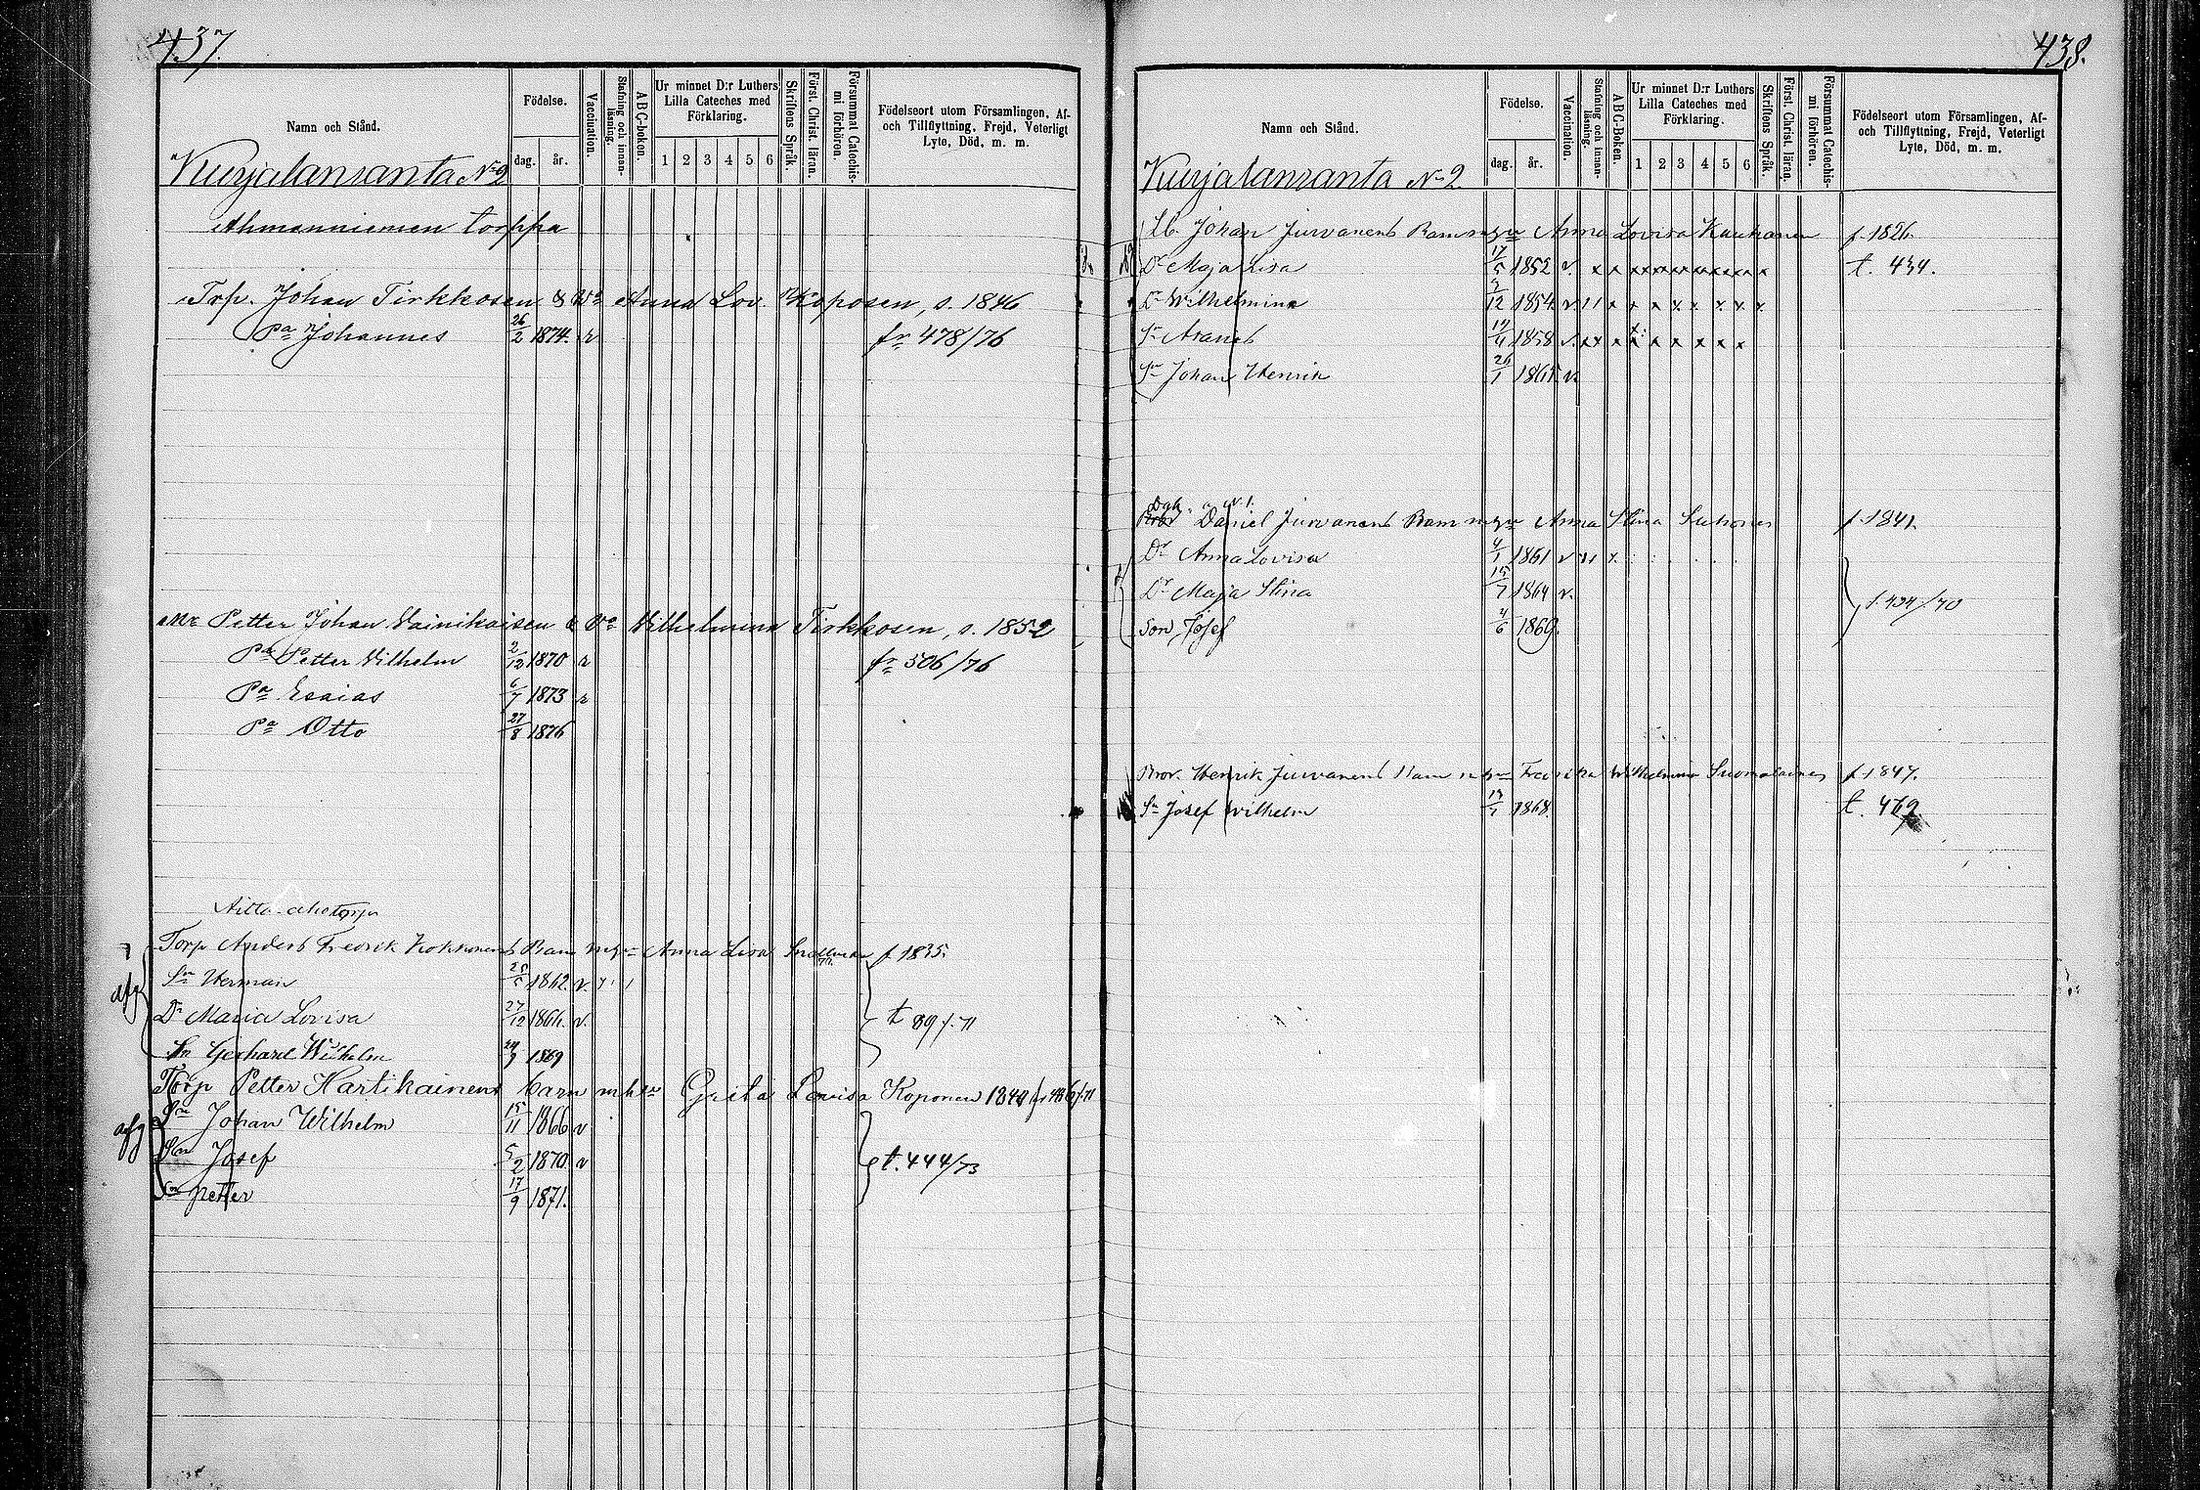 437.
Namn och Stånd.
Födelse.
dag.
år.
Vaccination.
Stafning och innan-läsning.
A B C-boken.
Ur minnet D:r Luthers
Lilla Cateches med
Förklaring.
1 2 3 4 5 6
Skriftens Språk.
Först. Christ. läran.
Försummat Catechis-
mi förhören.
Födelseort utom Församlingen, Af-
och Tillflyttning, Frejd, Veterligt
Lyte, Död, m. m.
Kurjalanranta No 2
Ahmanniemen torppa
Trp. Johan Tirkkosen & Vo Anna Lov. Koposen, s. 1846
Pa Johannes 26/2 1874. r fr 478/76
Petter Johan Vainikaisen & Vo Wilhelmina Tirkkosen, s. 1852
Pa Petter Vilhelm 2/12 1870 r fr 506/76
Pa Esaias 6/7 1873 r
Pa Otto 27/8 1876
Torp Anders Fredrik Kokkonens Barn m Anna Lisa f 1835.
afg
Sn Herman 1862. v.
Dr Maria Lovisa 27/12 1866. v. t 89/71
Sn Gerhard Wilhelm 1869
Torp Petter Hartikainens barn m Greta Lovisa Koponen 1840
afg
Sn Johan Wilhelm 15/11 1866 v
Sn Josef 5/2 1870 v t. 444/73
Sn petter 17/9 1871.
438.
Namn och Stånd.
Födelse.
dag.
år.
Vaccination.
Stafning och innan-
läsning.
A B C-Boken.
Ur minnet D:r Luthers
Lilla Cateches med
Förklaring.
1 2 3 4 5 6
Skriftens Språk.
Först. Christ. läran.
Försummat Catechis-
mi förhören.
Födelseort utom Församlingen, Af-
och Tillflyttning, Frejd, Veterligt
Lyte, Död, m. m.
Kurjalanranta No 2.
Johan Jurvanens Barn m Anna Lovisa Kauhanen f. 1826.
Dr Maja Lisa 17/5 1852 v. x x x x x x x x x x x t. 434.
Dr Wilhelmina 2/12 1854 v x x x x x x x x
Sn 1858 v. x x x x x x x x x
Sn Johan Henrik 26/1 1865 v.
Daniel Jurvanens Barn m Anna Stina f. 1841.
Dr Anna Lovisa 4/1 1861 v
Dr Maja Stina 15/7 1864 v. 434/70
Son Josef 4/6 1869.
Bror. Henrik Jurvanens Barn m Fredrika Wilhelmina Suomalainen f. 1847.
Sn Josef Wilhelm 1868. t. 462